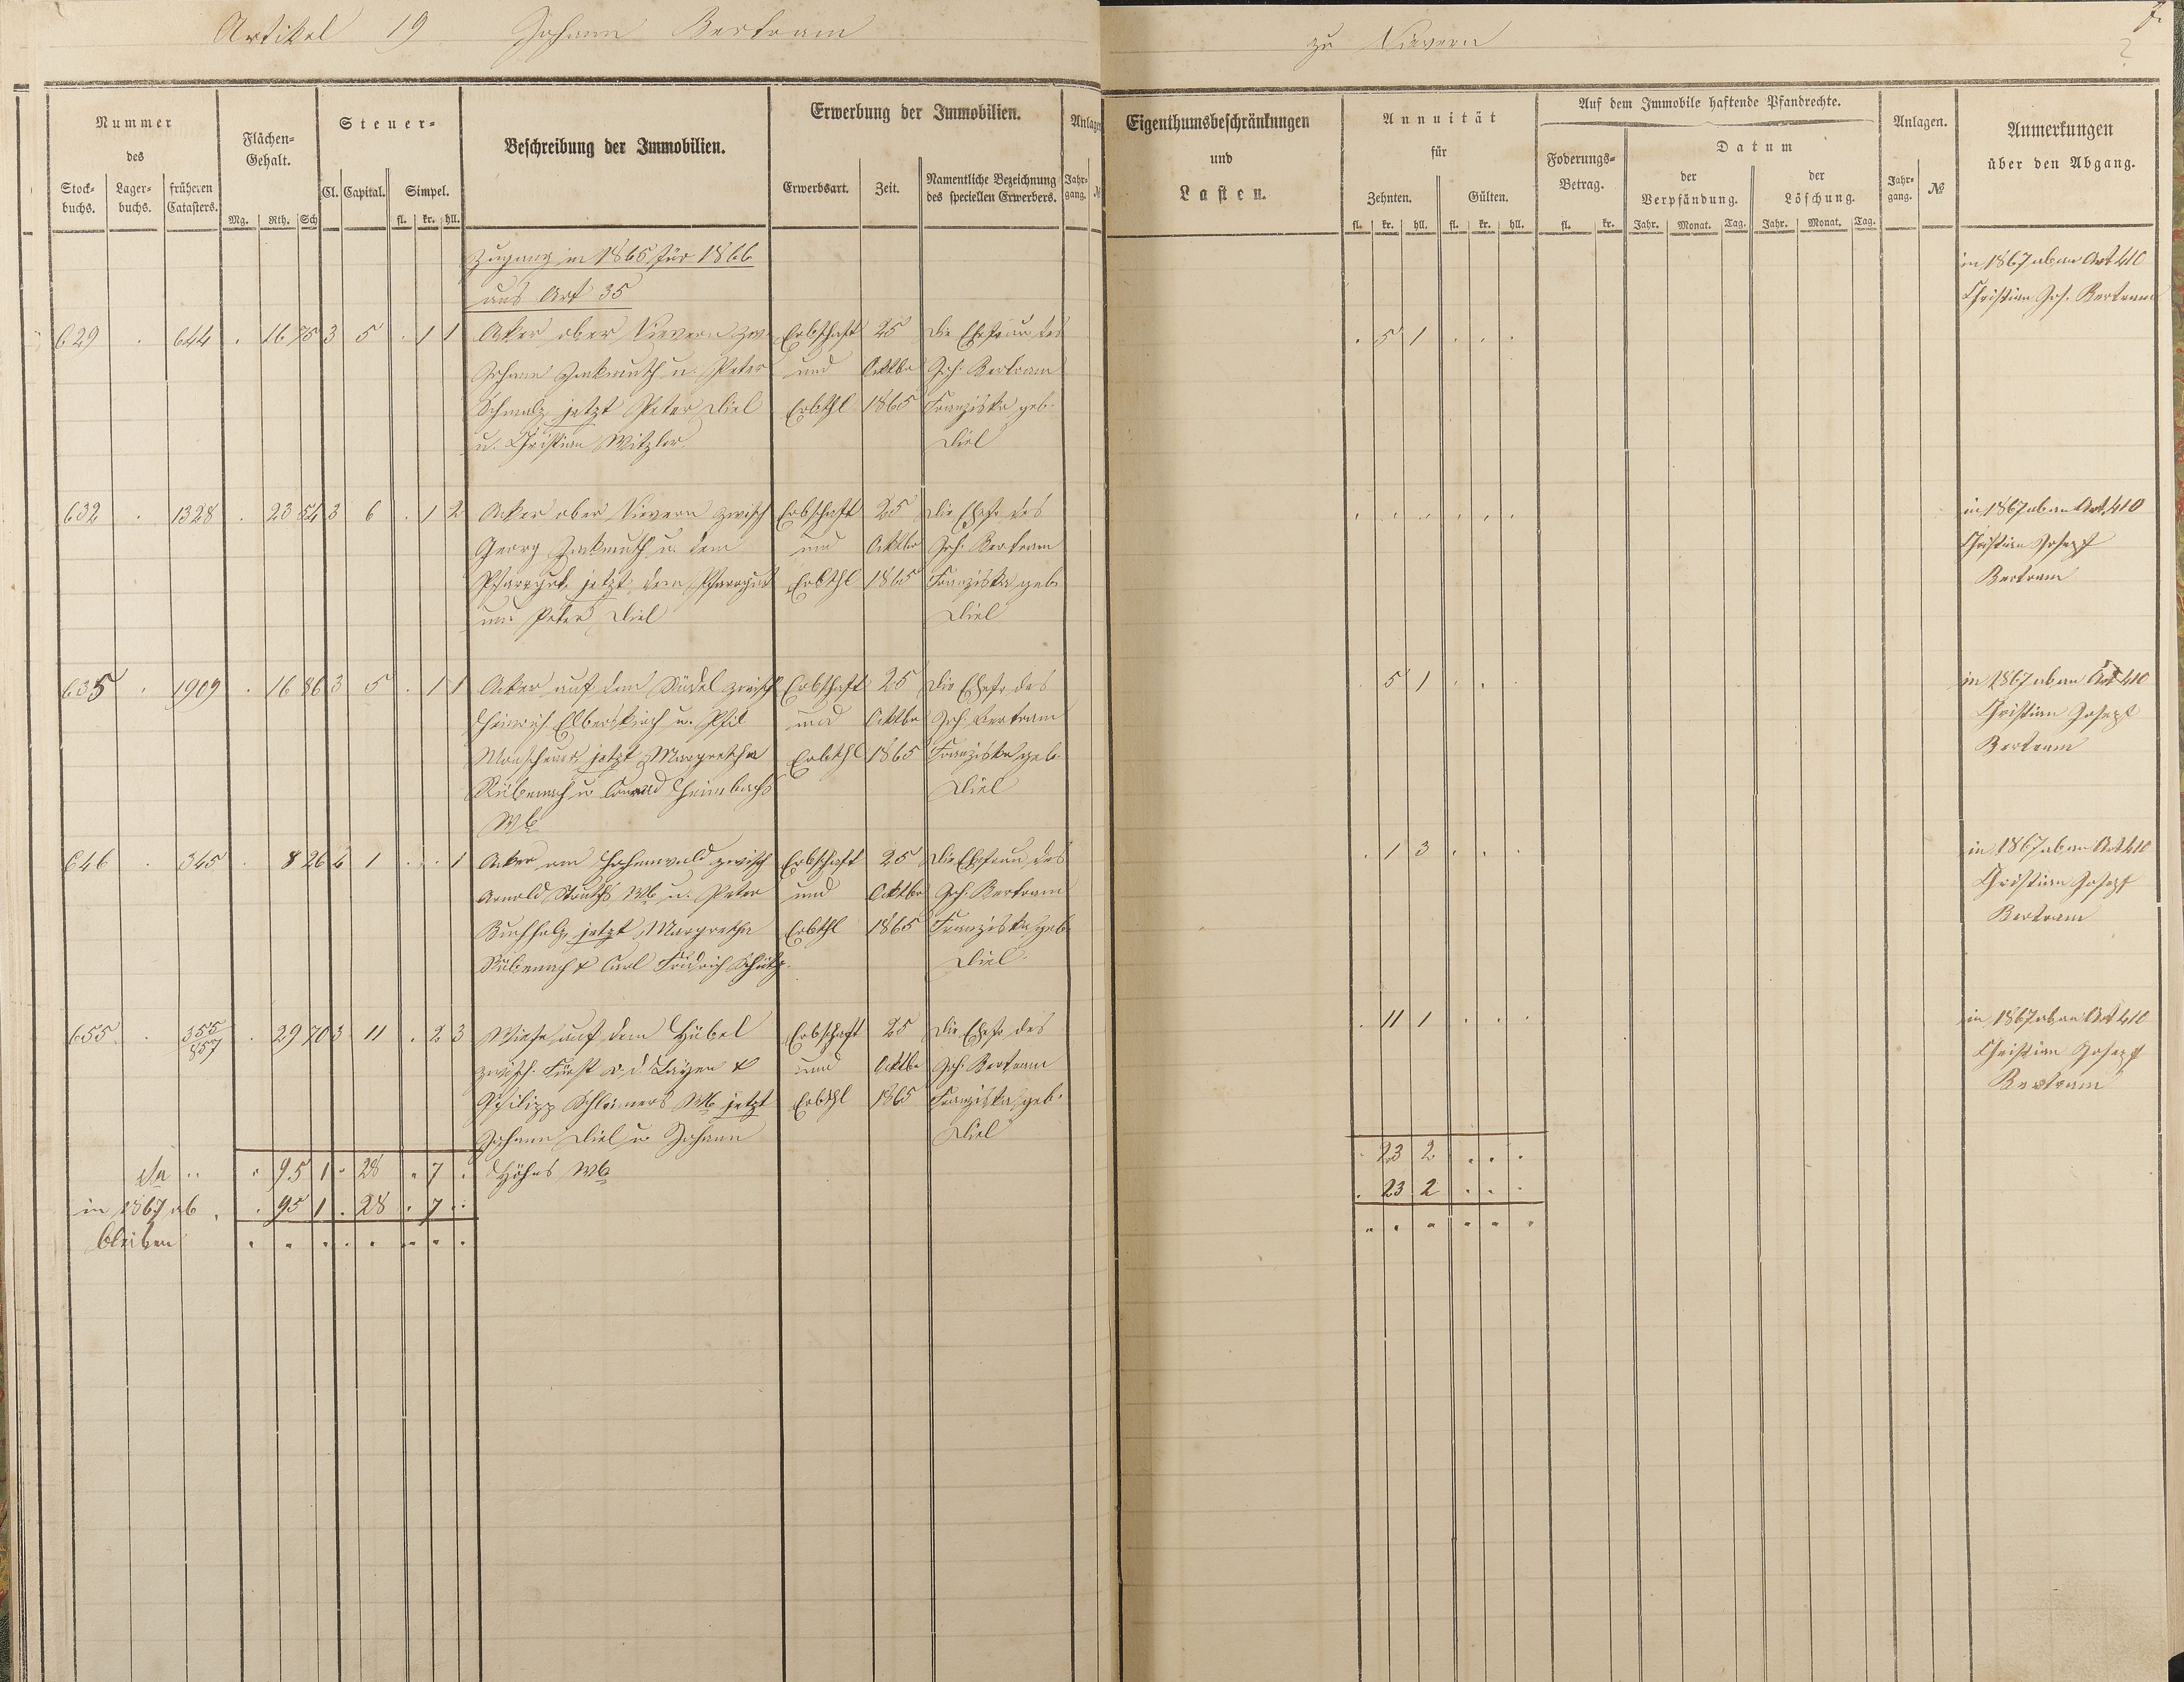 Artikel 19 Johann Bertram zu Nievern
7.
Nummer des
Stockbuchs. Lagerbuchs. früheren Catasters.
Flächen-Gehalt.
Mg. Rth. Sch
Steuer-
Cl. Capital. Simpel.
fl. kr. hll.
Beschreibung der Immobilien.
Erwerbung der Immobilien.
Erwerbsart. Zeit. Namentliche Bezeichnung des speciellen Erwerbers.
Anlagen
Jahrgang. №
Eigenthumsbeschränkungen und Lasten.
Annuität für
Zehnten. Gülten.
fl. kr. hll. fl. kr. hll.
Auf dem Immobile haftende Pfandrechte.
Foderungs-Betrag.
fl. kr.
Datum
der Verpfändung. der Löschung.
Jahr. Monat. Tag. Jahr. Monat. Tag.
Anlagen.
Jahrgang. №
Anmerkungen über den Abgang.
Zugang in 1865 für 1866
aus Art 35
in 1867 ab an Art 410
Christian Jos. Bertram
629 . 644 . 16 75 3 5 . 1 1 Acker ober Nievern zw. Erbschaft 25 die Ehefrau des . 5 1 . . .
Johann Zinkmuth u. Peter und Oktbr Joh. Bertram
Schmalz jetzt Peter Diel Erbthl 1865 Franziska geb.
u. Christian Witzler Diel
632 . 1328 . 23 54 3 6 . 1 2 Acker ober Nievern zwisch Erbschaft 25 die Ehefr des . . . . . . in 1867 ab an Art. 410
Georg Zinkmuth u. dem und Oktbr Joh. Bertram Christian Joseph
Pfarrgut jetzt dem Pfarrgut Erbthl 1865 Franziska geb. Bertram
und Peter Diel Diel
635 . 1909 . 16 86 3 5 . 1 1 Acker auf dem zwisch Erbschaft 25 die Ehefr des . 5 1 . . . in 1867 ab an Art 410
Heinrich Elberskirch u. Phil und Oktbr Joh. Bertram Christian Joseph
jetzt Margretha Erbthl 1865 Franziska geb. Bertram
Rübenach u Conrad Heimbachs Diel
Wb
646 . 345 . 8 26 4 1 . . 1 Acker am Hahnwald zwisch Erbschaft 25 die Ehefrau des . 1 3 . . . in 1867 ab an Art 410
Arnold Struths Wb u. Peter und Oktbr Joh. Bertram Christian Joseph
Buchholz jetzt Margretha Erbthl 1865 Franziska geb. Bertram
Rübenach & Carl Fridrich Schütz. Diel.
655 . 355 . 29 70 3 11 . 2 3 Wiese auf dem Hübel Erbschaft 25 die Ehefr des . 11 1 . . . in 1867 ab an Art 410
857 zwisch. Fürst v. d. Leyen & und Oktbr Joh. Bertram Christian Joseph
Philipp Schleimers Wb jetzt Erbthl 1865 Franziska geb. Bertram
Johann Diel u Johann Diel
Sa . . . 95 1 . 28 . 7 . Höhns Wb . 23 2 . . .
in 1867 ab . . 95 1 . 28 . 7 . . 23 2 . . .
bleiben . . . . . . . . . . . . . .